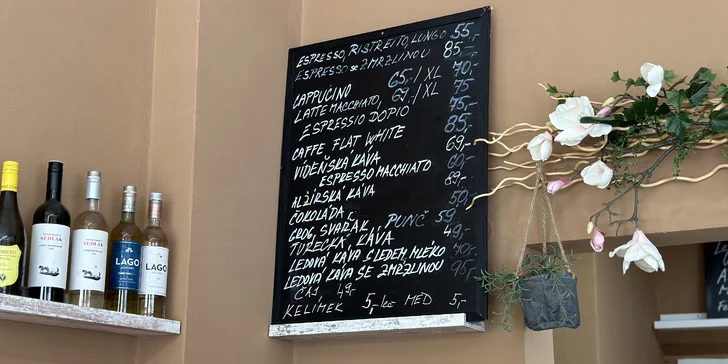 ESPRESSO, RISTRETTO, LUNGO 55,-
ESPRESSO se ZMRZLINOU 85,-
CAPPUČINO 65,-/XL 70,-
LATTE MACCHIATO, 69,-/XL 75
ESPRESSIO DOPIO 75,-
CAFFE FLAT WHITE 85,-
VÍDEŇSKA KÁVA 69,-
ESPRESSO MACCHIATO 60,-
ALŽÍRSKÁ KÁVA 89,-
ČOKOLÁDA 50,-
GROG, SVAŘÁK, PUNČ 59
TURECKÁ, KÁVA 49,-
LEDOVÁ KÁVA S LEDEM MLÉKO 70,-
LEDOVÁ KÁVA SE ZMRZLINOU 95,-
ČAJ 49,-
KELIMEK 5,-kč MED 5,-
SEDLÁK
SEDLÁK
LAGO
LAGO